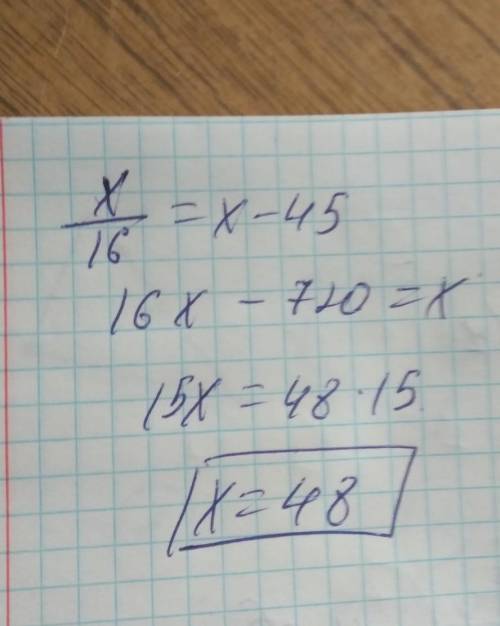 x/16 = x - 45
16x - 720 = x
15x = 48 · 15
x = 48